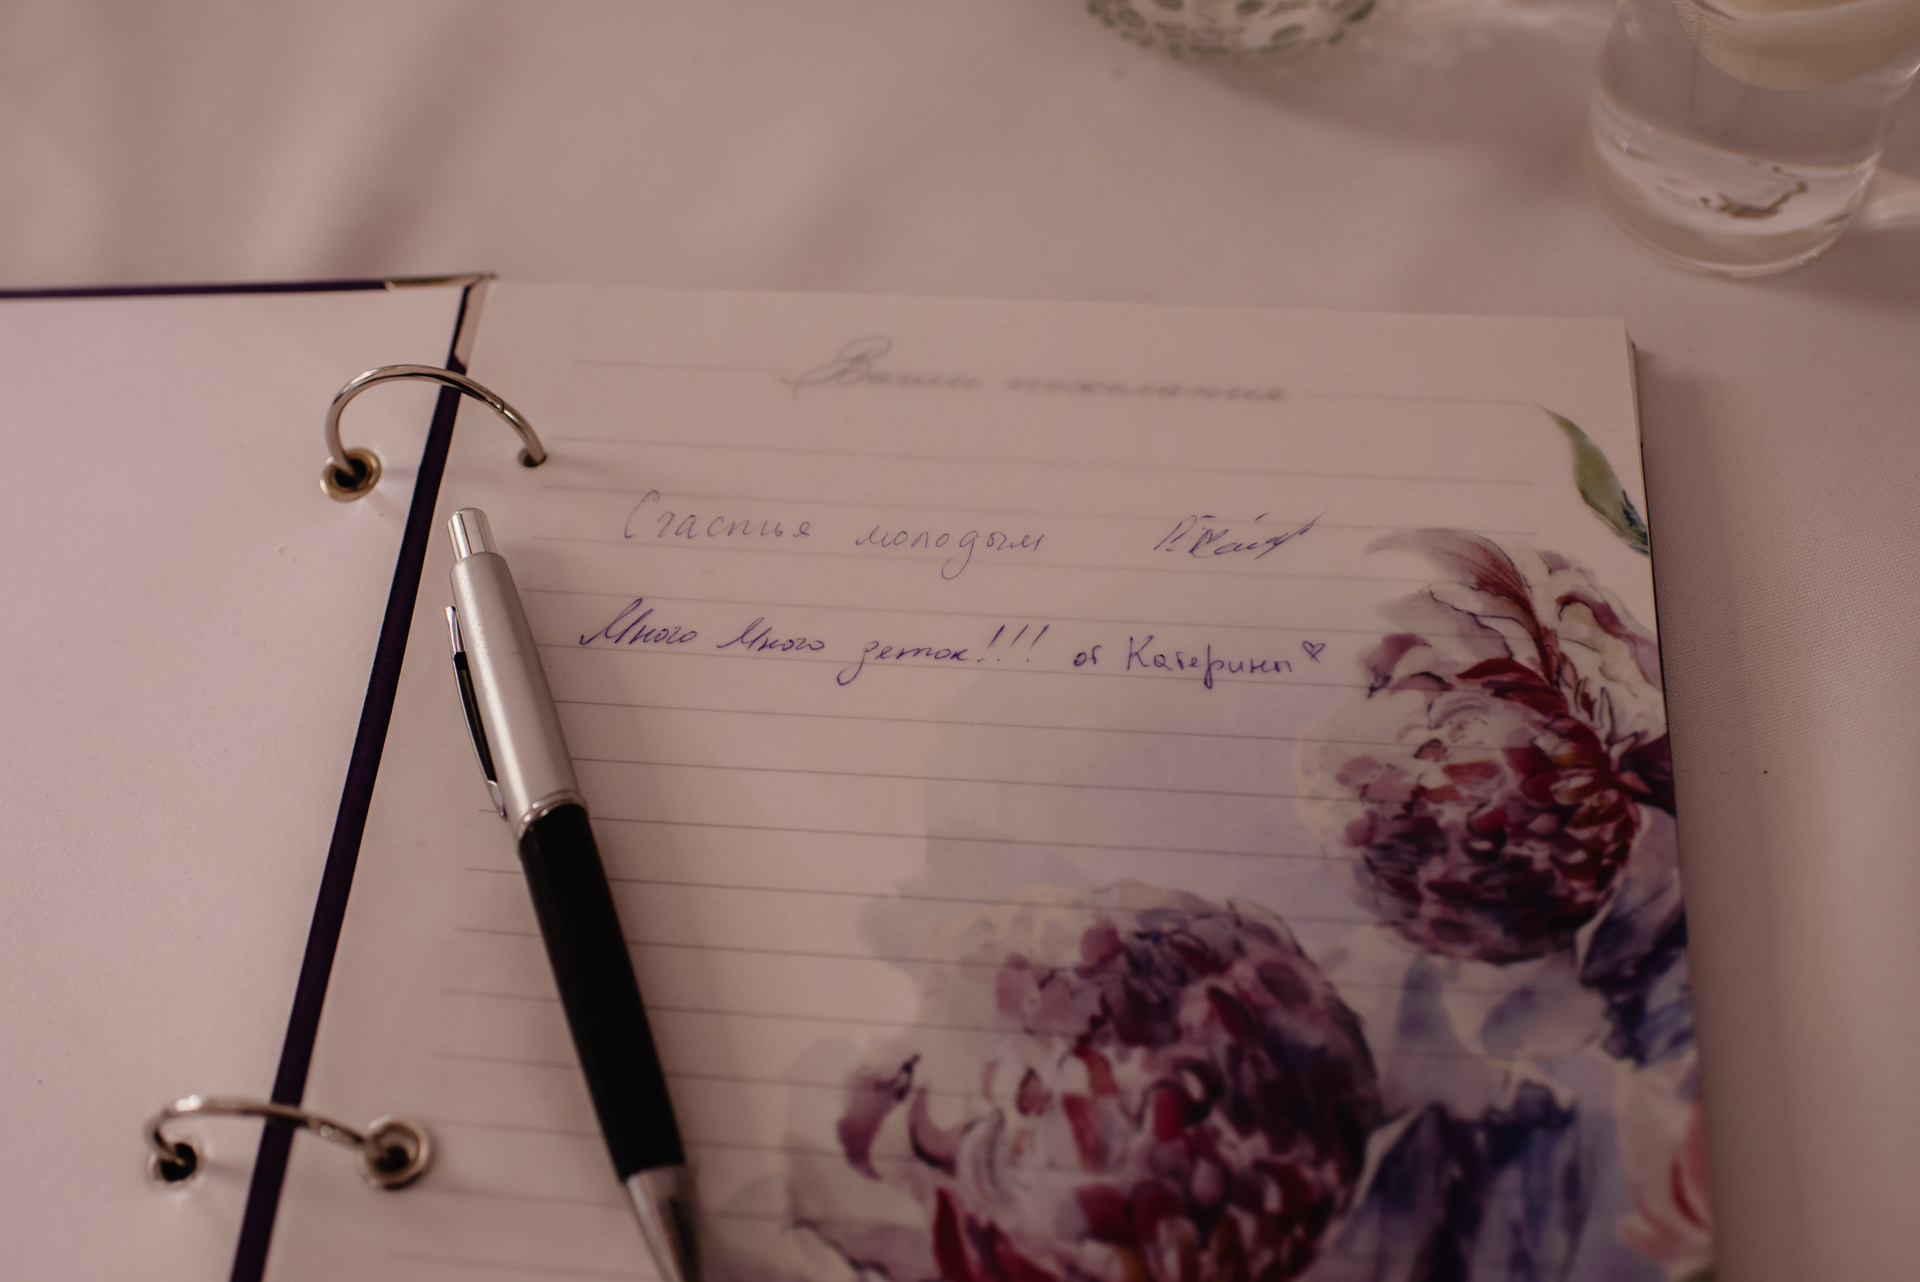 Ваши пожелания
Счастья молодым
Много Много деток!!! от Катерины ♡